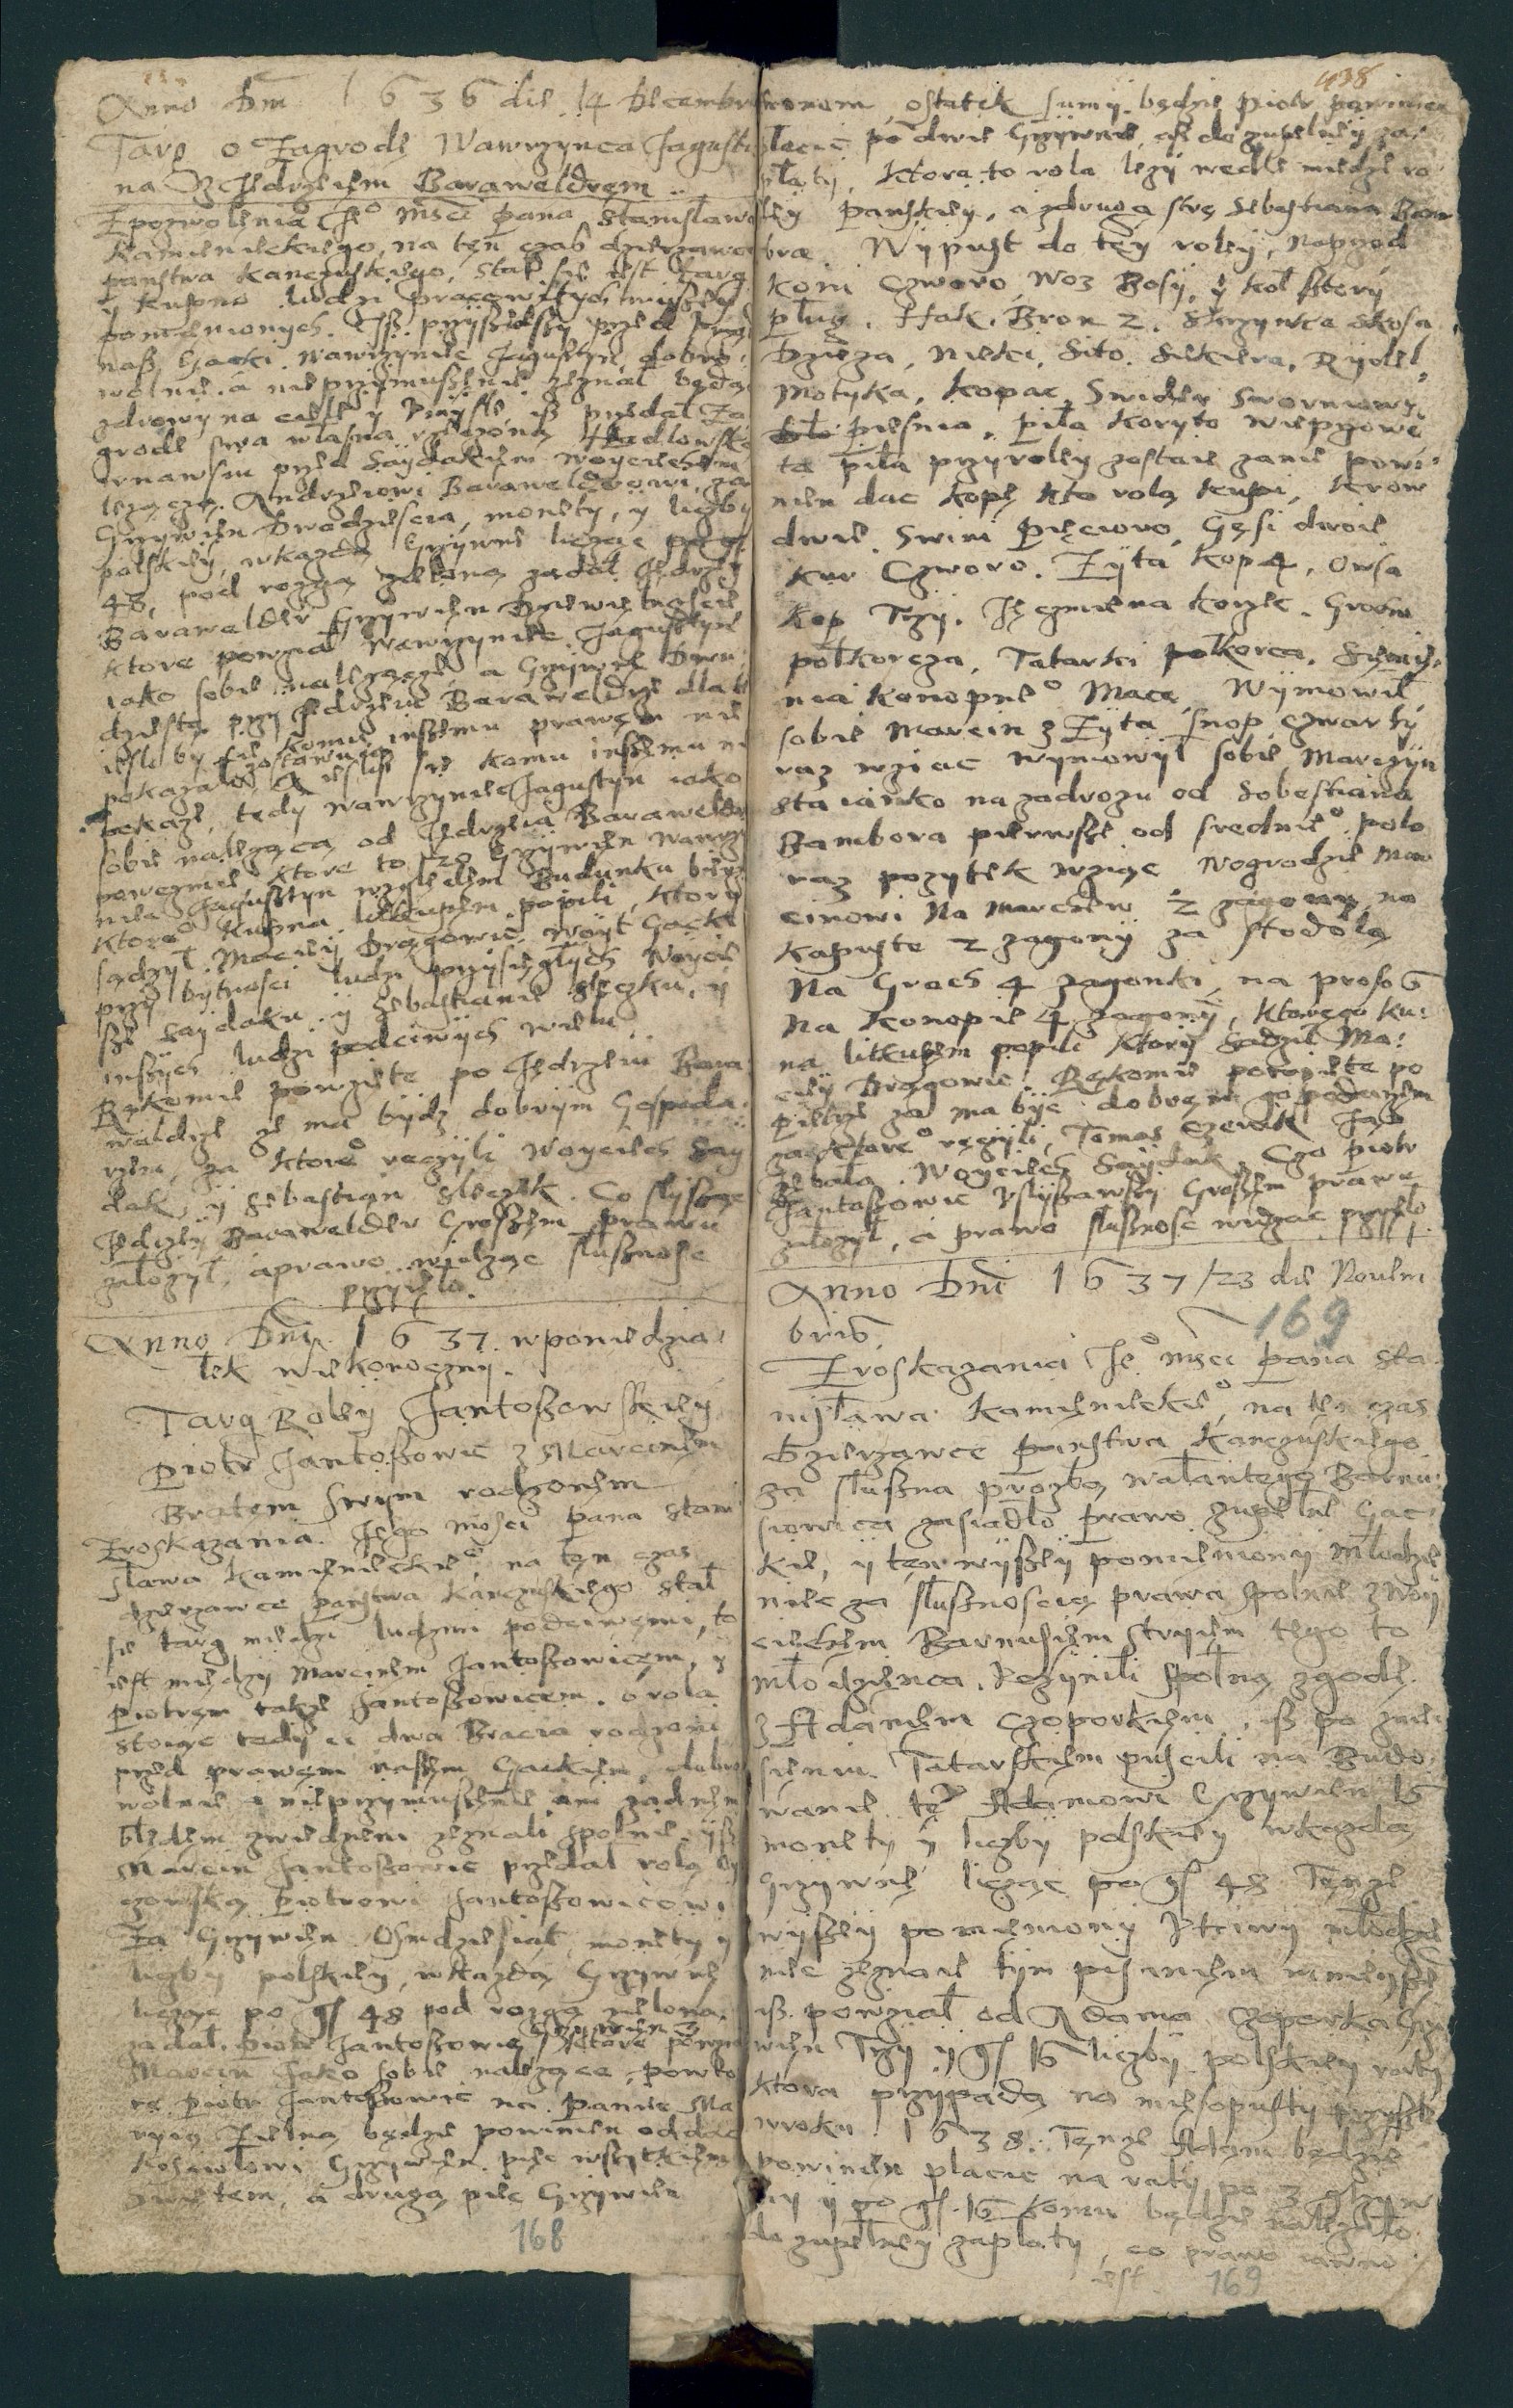 Anno Dni 1636 die 14 Decembris
Targ o Zagrodę Wawrzynca Jagusty
na Z Jędrzeiem Baraweldrem
Z pozwolenia Je° Msci Pana Stanisława
Kamienieckiego, na ten czas dzierzawce
panstwa Kanczuskiego, Stał się iest targ
y kupno ludzi pracowitych wyszszey
pomienionych. Isz przyszedszy przed
nasz Gacki Wawrzyniec Jagustyn dobro
wolnie a nieprzymuszenie zeznał będąc
zdrowy na ciele y vmysle, isz przedał Za
grode swa własna rzeczoną
przed Saydakiem Woyciechem
lezącą. Andrzeiowi Baraweldrowi, za
Grzywien Dwadziescia, monety, y liczby
polskiey, w kazdą Grzywnę licząc po gr
48, pod rozgą zieloną zadał Jędrzey
Barawelder Grzywien Dziewiętnascie
ktore powziął Wawrzyniec Jagustyn
iako sobie nalezące, a Grzywien Dwu
dziestą przy Jędrzeiu Baraweldrze
iesli by się komu inszemu prawem nie
pokazało, A iesli się komu inszemu nie
pokaze, tedy Wawrzyniec Jagustyn iako
sobie nalezącą od Jędrzeia Baraweldra
powezmie, ktore to 20 Grzywien Wawrzy
niec Jagustyn względem Budunku
ktore° kupna litkupem popili, ktory
sądzył Maciey Drągowic woyt Gacki
przy bytnosci ludzi przysięgłych Woycie
sze Saydaku y Sebastianie Sleczku, y
inszych ludzi podciwych wielu.
Rękomie powzięte po Jędrzeiu Bara
weldrze ze ma bydz dobrym Gospoda
rzem, za ktore° ręczyli Woyciech Say
dak, y Sebastian Sleczek. Co słysząc
Jędrzey Barawelder Groszem prawu
załozył, a prawo widząc słusznosc
przyięło.
Anno Dni 1637. w poniedzia
łek wielkonoczny.
Targ Roley Jantoszowskiey
Piotr Jantoszowic z Marcinem
Bratem swym rodzonem
Z roskazania Jego Mosci Pana Stani
sława Kamienieckie°, na ten czas
dzierzawce Panstwa Kanczuskiego stał
się targ miedzi ludzmi podciwemi, to
iest miedzy Marcinem Jantoszowicem, y
Piotrem takze Jantoszowicem. o rola
stoiąc tedy ci dwa Bracia rodzoni
przed prawem naszym Gackiem, dobro
wolnie a nieprzymuszenie ani zadnem
błędem zwiedzieni zeznali społnie, ysz
Marcin Jantoszowic przedał rolą oy
czowską Piotrowi Jantoszowicowi
Za Grzywien Osmdziesiąt monety y
liczby polskiey, w kazdą Grzywnę
licząc po gr 48 pod rozgą zieloną
zadał Piotr Jantoszowic Grzywien 3 ktore powzią
Marcin Jako sobie nalezące, powto
re Piotr Jantoszowic na Panne Ma
ryią Zielną będzie powinien oddac
Kosciołowi Grzywien pięc wszytkiem
Swiętem, a drugą pięc Grzywien
168
438
ostatek sumy będzie Piotr powinien
płacic po dwie Grzywnie, asz do zupełney za
płaty, ktora to rola lezy wedle miedze ro
ley Panskiey, a z drugą stronę Sebastiana Bam
bra. Wypust do tey roley, naprzod
koni Czworo, Woz Bosy, y koł sztery
pług. Hak. Bron 2. Skrzynka Skosa
Dzieza, Niecki, Sito. Siekiera, Rydel,
Motyka, Kopac, Swider Swornowy,
piesnia, piła koryto wieprzowe
ta piła przy roley zostaie za nie powi
nien dac kopę kto rolą kupi, krow
dwie, Swini Pięcioro, Gęsi dwoie
kur Czworo. Zyta kop 4, Owsa
kop Trzy. Jęczmiena korzec. Grochu
połkorcza, Tatarki połkorca. Siemie
nia konopne° Maca, Wymowił
sobie Marcin z Zyta snop czwarty
raz wziac wymowył sobie Marczyn
staianko na zadrozu od Sobestiana
Bambora pierwsze od srednie° polo
raz pozytek wziąc W ogrodzie Mar
cinowi Na Marchew 2 zagony na
kapuste 2 zagony za stodołą
Na Groch 4 zagonki, na proso 6
Na konopie 4 zagony, ktorego ku
na litkupem popili ktory Sądził Ma
ciey Drągowic. Rękomie powzięte po
Pietrze ze ma byc dobrem gospodarzem
za ktore° ręczyli, Tomas Czerwik Jan
Woyciech Saydak. Czo Piotr
Jantoszowic vsłyszawszy Groszem prawu
załozył, a prawo słusznosc widząc przyięło
Anno Dni 1637 / 23 die Nouem
bris
169
Z roskazania Je° Msci Pana Sta
nisława Kamienieckie°, na ten czas
Dzierzawce Panstwa Kanczuskiego
za słuszna prozbą Walantego Barnu
siowica zasiadło Prawo zupełne Gac
kie, y ten wyszey pomieniony Młodzie
niec za słusznoscią prawa spolnie z Woy
ciechem Barnusiem stryiem tego to
młodzienca, Vczynili społną zgodę
z Adamem Czoporkiem, isz po
Tatarskiem puscili na Budo
wanie te° Adamowi Grzywien 16
monety y liczby polskiey w kazdą
Grzywnę licząc po gr 48 Tenze
wyszey pomieniony Vtciwy młodzie
niec zeznaie tym pisaniem
isz powziął od Adama Czoporka Grzy
wien Trzy y gr 16 liczby polskiey raty
ktora przypada na miesopusty przyszłe
w roku 1638. Tenze Adam będzie
powinien płacic na raty po 3 grzyw
ny y po gr. 16 komu będzie nalezało
do zupełney zapłaty, co prawo iawno
iest. 169